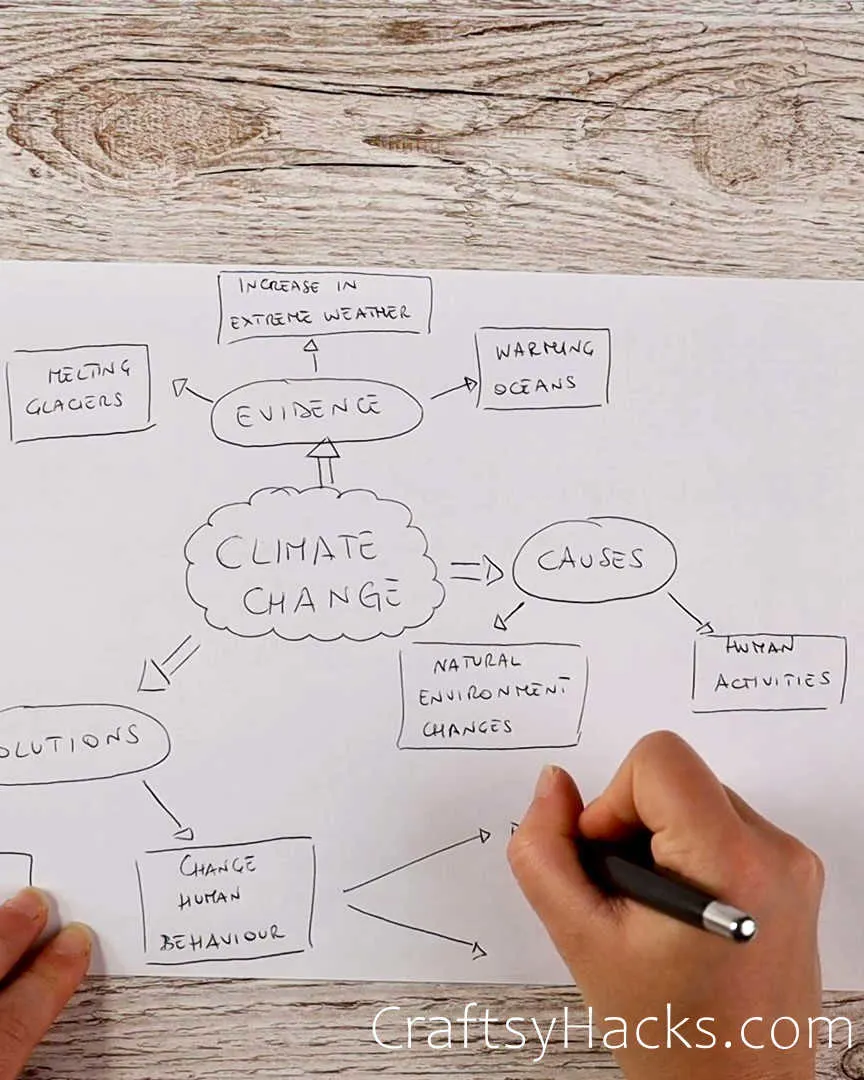 INCREASE IN
EXTREME WEATHER
MELTING
GLACIERS
EVIDENCE
WARMING
OCEANS
CLIMATE
CHANGE
CAUSES
NATURAL
ENVIRONMENT
CHANGES
HUMAN
ACTIVITIES
OLUTIONS
CHANGE
HUMAN
BEHAVIOUR
CraftsyHacks.com